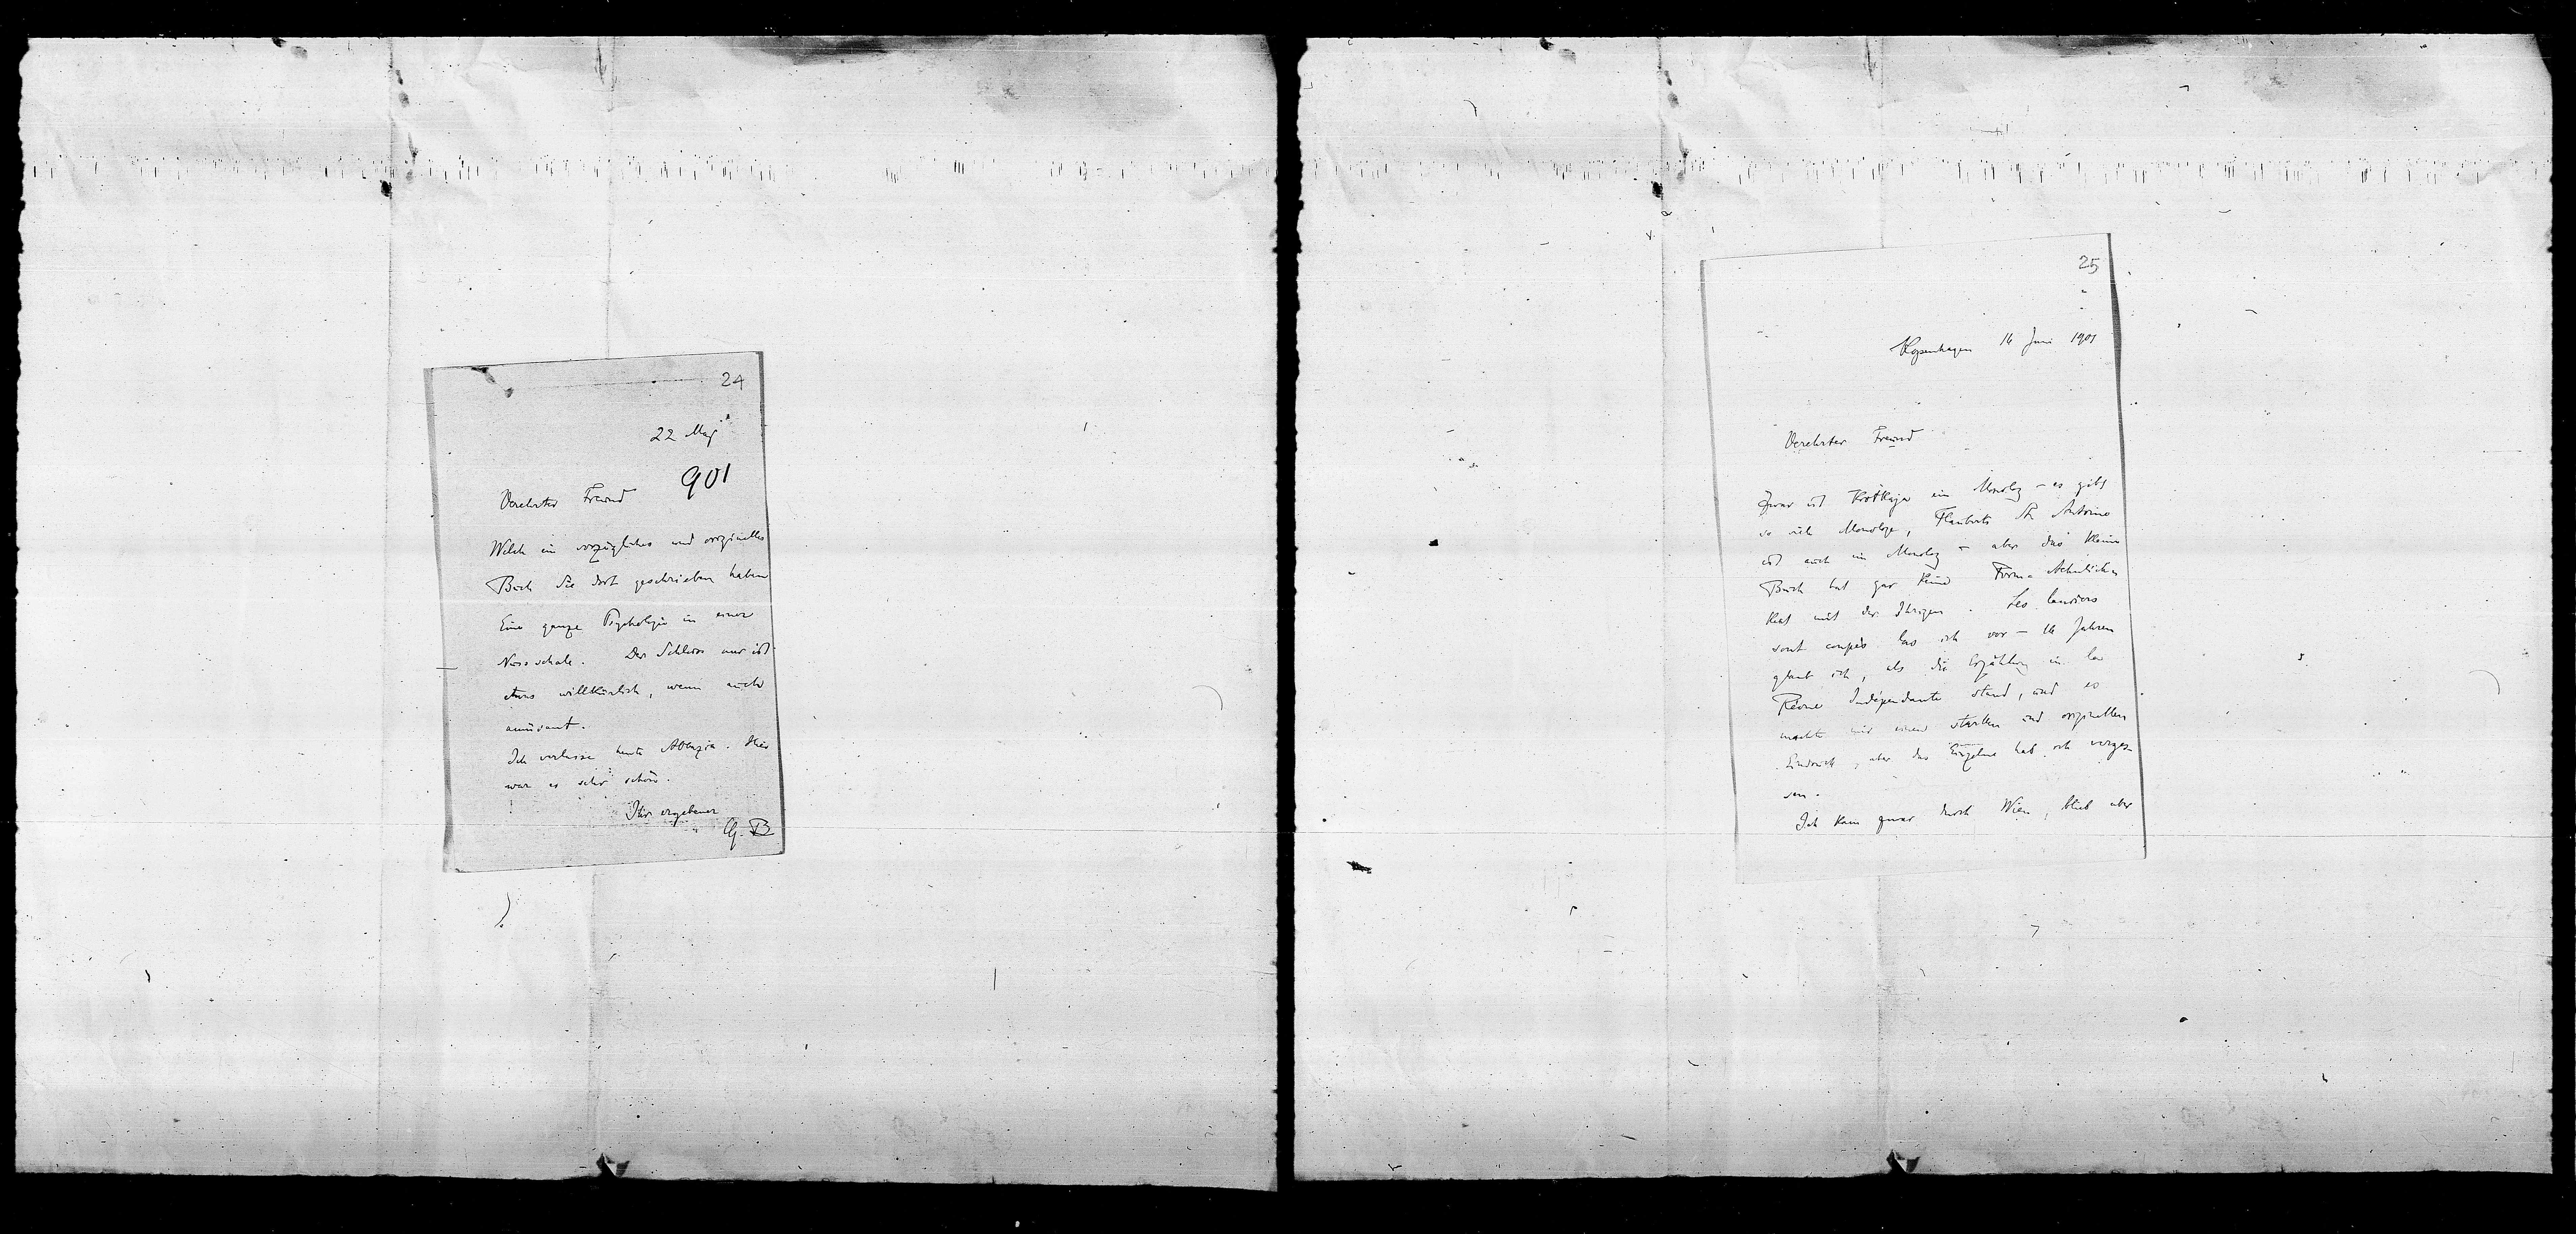 24
22 Maj
901
Verehrter Freund
Welch ein vorzügliches und originelles
Buch Sie dort geschrieben haben
Eine ganze Psychologie in einer
Nussschale. Der Schluss nur ist
etwas willkürlich, wenn auch
amüsant.
Ich verlasse heute Abbazia. Hier
war es sehr schön.
Ihr ergebener
G. B
25
Kopenhagen 14 Juni 1901
Verehrter Freund
Zwar ist Krotkaja ein Monolog – es gibt
so viele Monologe, Flauberts St Antoine
ist auch ein Monolog – aber das kleine
Buch hat gar keine Form-Aehnlich
keit mit der Ihrigen. Les lauriers
sont coupés las ich vor – 14 Jahren
glaub ich, als die Erzählung in la
Revue Indépendante stand, und es
machte mir einen starken und originellen
Eindruck, aber das Einzelne hab ich verges
sen.
Ich kam zwar durch Wien, blieb aber